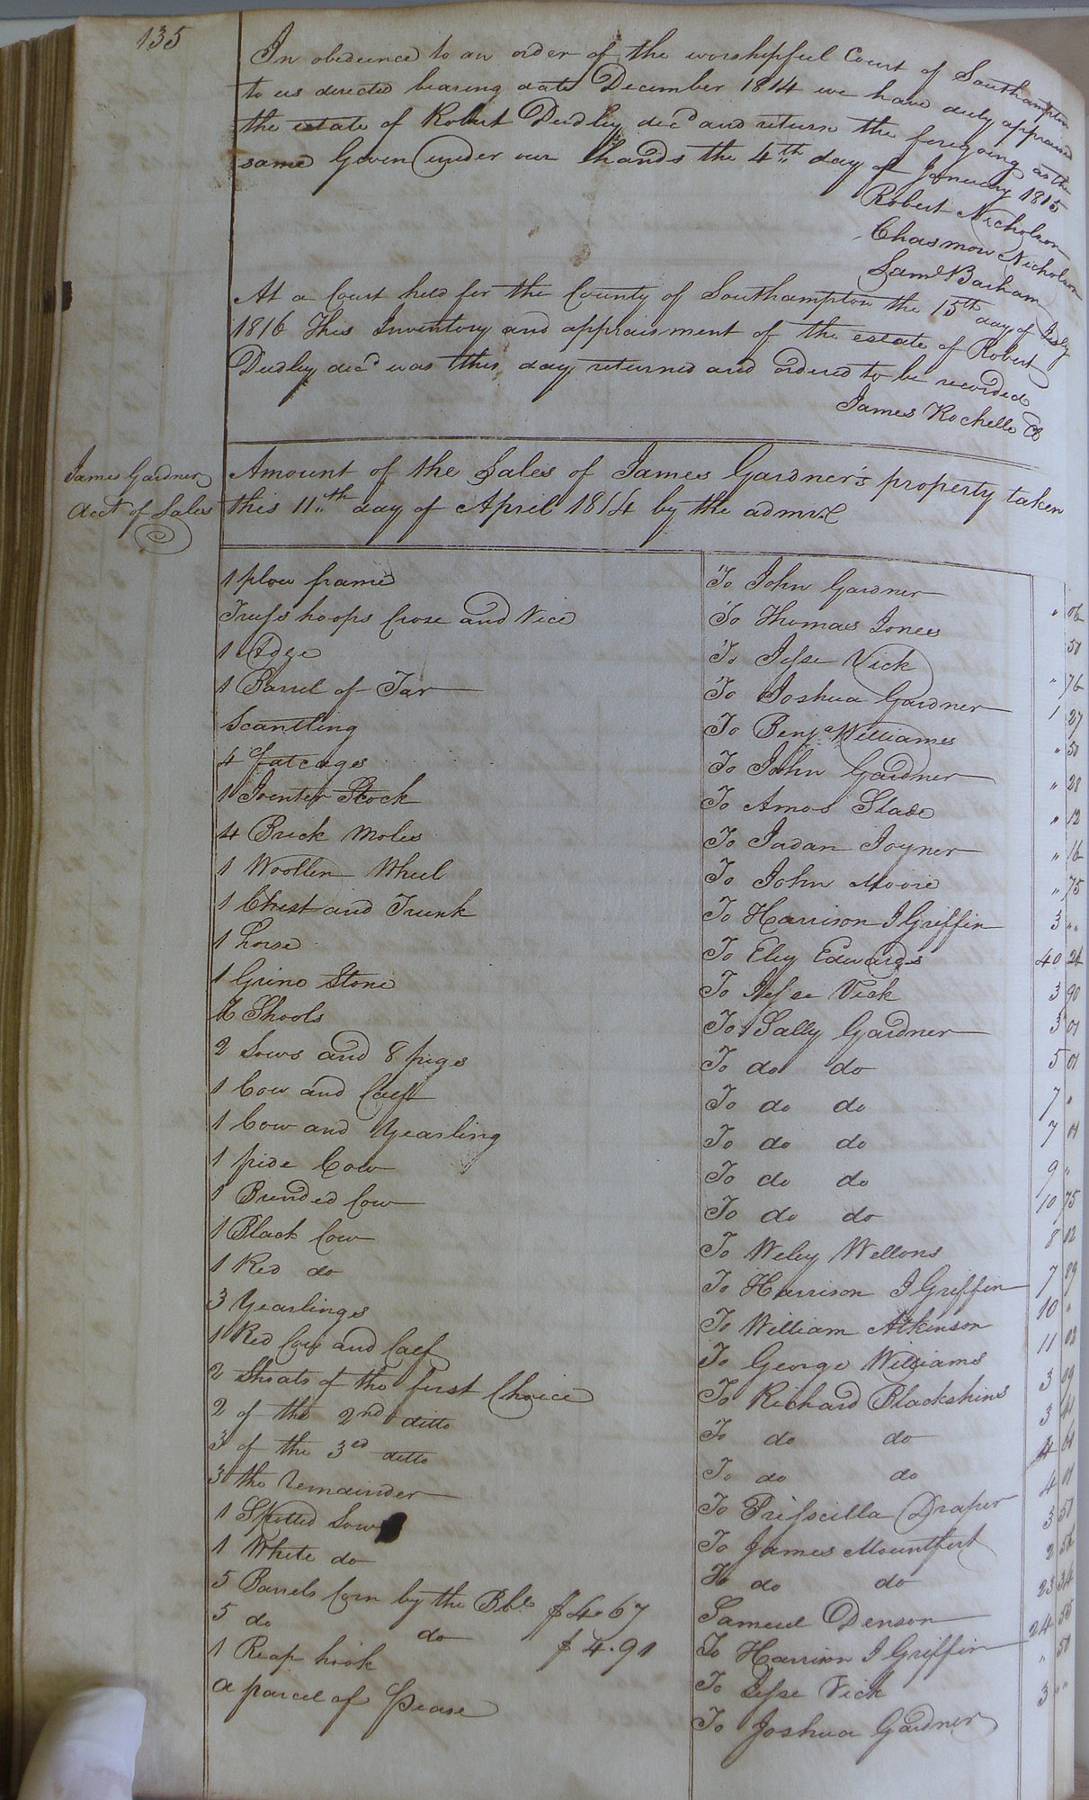 135
In obedience to an order of the worshipful Court of Southampton
to us directed bearing date December 1814 we have duly appraised
the estate of Robert Dudley decd and return the foregoing as the
same Given under our hands the 4th day of January 1815
Robert Nicholson
Chasmow Nicholson
Saml Barham
At a Court held for the County of Southampton the 15th day of July
1816 This Inventory and appraisment of the estate of Robert
Dudley decd was this day returned and ordered to be recorded
James Rochelle
James Gardner
Acct of Sales
Amount of the Sales of James Gardner's property taken
this 11th day of April 1814 by the admr
1 plow frame To John Gardner " 06
Truss hoops Croze and Vice To Thomas Jones 50
1 Adze To Jesse Vick " 76
1 Barrel of Tar To Joshua Gardner 1 27
Scantling To Benj Williams " 50
4 To John Gardner " 28
1 Jointer Stock To Amos Slade " 12
4 Brick Moles To Jadan Joyner " 16
1 Woollen Wheel To John Moore " 75
1 Chest and Trunk To Harrison J Griffin 3 "
1 horse To Eley Edwards 40 24
1 Grind Stone To Jesse Vick 3 90
6 Shoots To Sally Gardner 3 01
2 Sows and 8 pigs To do do 5 01
1 Cow and Calf To do do 7 "
1 Cow and Yearling To do do 7 01
1 pide Cow To do do 9 "
1 Brended Cow To do do 10 75
1 Black Cow To Weley Wellons 8 02
1 Red do To Harrison J Griffin 7 09
3 Yearlings To William Atkinson 10 "
1 Red Cow and Calf To George Williams 11 02
2 Shoats of the first Choice To Richard Blackshins 3 09
2 of the 2nd ditto To do do 3
3 of the 3rd ditto To do do 4 01
3 the remainder To Prisscilla Draper 4 01
1 Spotted Sow To James Mountfort 3 51
1 White do To do do 2 56
5 Barrels Corn by the Bbl $4.67 Samuel Denson 23 34
5 do do $4.91 To Harrison J Griffin 24 55
1 Reap hook To Jesse Vick " 50
a parcel of Pease To Joshua Gardner 3 "